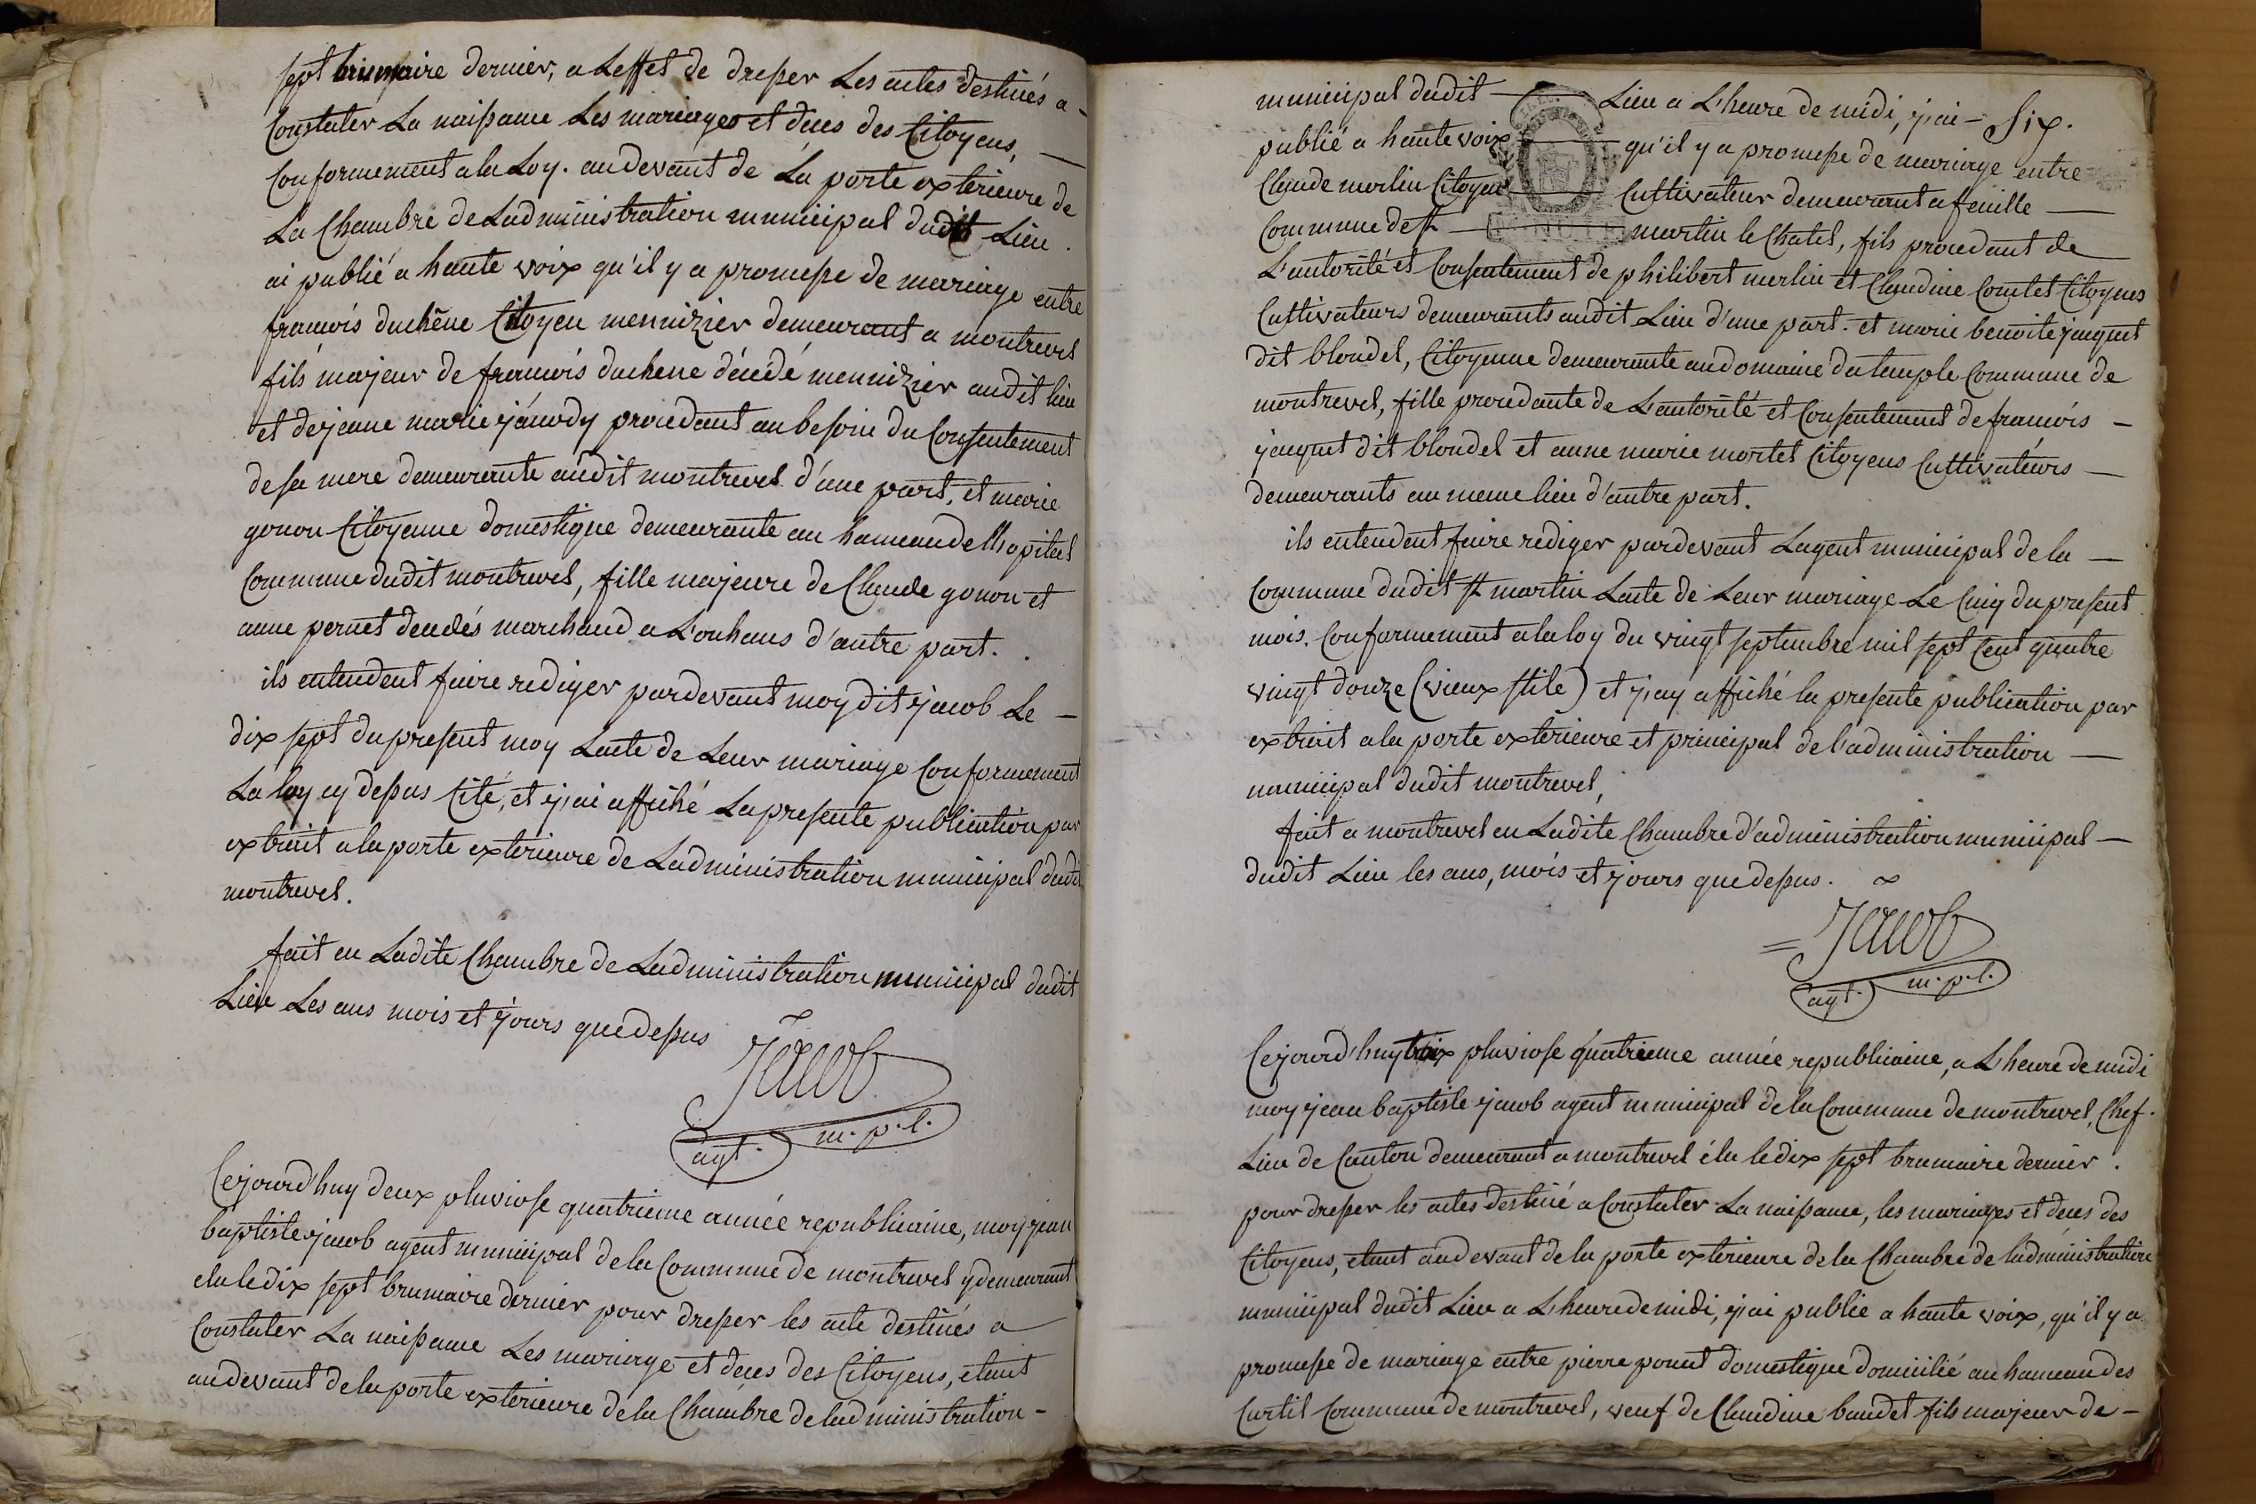 sept brumaire dernier, a Leffet de dresser Les actes destinés a -
Constater La naissance Les mariages et deces des Citoyens, —
Conformement a la Loy. au devant de La porte exterieure de
La Chambre de Ladministration municipal dudit Lieu.
ai publié a haute voix qu'il y a promesse de mariage entre
francois duchêne Citoyen mennizier demeurant a montrevel
fils majeur de francois duchene décédé mennizier audit lieu
et de jeanne marie janody procedant au besoin du Consentement
de sa mere demeurante audit montrevel d'une part, et marie
gonon Citoyenne domestique demeurante au hameau de Lhopital
Commune dudit montrevel, fille majeure de Claude gonon et
anne pernet decedés marchand a Louhans d'autre part.
ils entendent faire rediger pardevant moy dit jacob Le —
dix sept du present moy Lacte de Leur mariage Conformement
La loy cy dessus Cité, et j'ai affiché La presente publication par
extrait a la porte exterieure de Ladministration municipal dudit
montrevel.
fait en Ladite Chambre de Ladministration municipal dudit
Lieu Les ans mois et jours que dessus
Jacob
agt. m. p. l.
Cejourd'huy deux pluviose quatrieme année republicaine, moy jean
baptiste jacob agent municipal de la Commune de montrevel y demeurant
elu le dix sept brumaire dernier pour dresser les acte destinés a
Constater La naissance Les mariage et deces des Citoyens, etant
au devant de la porte exterieure de la Chambre de ladministration -
municipal dudit — Lieu a L'heure de midi, j'ai — Six.
publié a haute voix — qu'il y a promesse de mariage entre
Claude merlin Citoyen — Cultivateur demeurant a feuille —
Commune de St — martin le Chatel, fils procedant de
L'autorité et Consentement de philibert merlin et Claudine Comtet Citoyens
Cultivateurs demeurants audit Lieu d'une part. et marie benoite jacquet
dit blondel, Citoyenne demeurante au domaine du temple Commune de
montrevel, fille procedante de L'autorité et Consentement de francois —
jacquet dit blondel et anne marie mortel Citoyens Cultivateurs —
demeurants au meme lieu d'autre part.
ils entendent faire rediger pardevant Lagent municipal de la —
Commune dudit St martin Lacte de Leur mariage Le Cinq du present
mois. Conformement a la loy du vingt septembre mil sept Cent quatre
vingt douze (vieux stile) et j'ay affiché la presente publication par
extrait a la porte exterieure et principal de l'administration —
municipal dudit montrevel,
fait a montrevel en Ladite Chambre d'administration municipal —
dudit Lieu les ans, mois et jours que dessus.
Jacob
agt. m. p. l.
Cejourd'huy trois pluviose quatrieme année republicaine, a L'heure de midi
moy jean baptiste jacob agent municipal de la Commune de montrevel, Chef-
Lieu de Canton demeurant a montrevel élu le dix sept brumaire dernier.
pour dresser les actes destiné a Constater La naissance, les mariages et deces des
Citoyens, etant au devant de la porte exterieure de la Chambre de ladministration
municipal dudit Lieu a L'heure de midi, j'ai publié a haute voix, qu'il y a
promesse de mariage entre pierre ponat domestique domicilié au hameau des
Curtil Commune de montrevel, veuf de Claudine baudet fils majeur de —